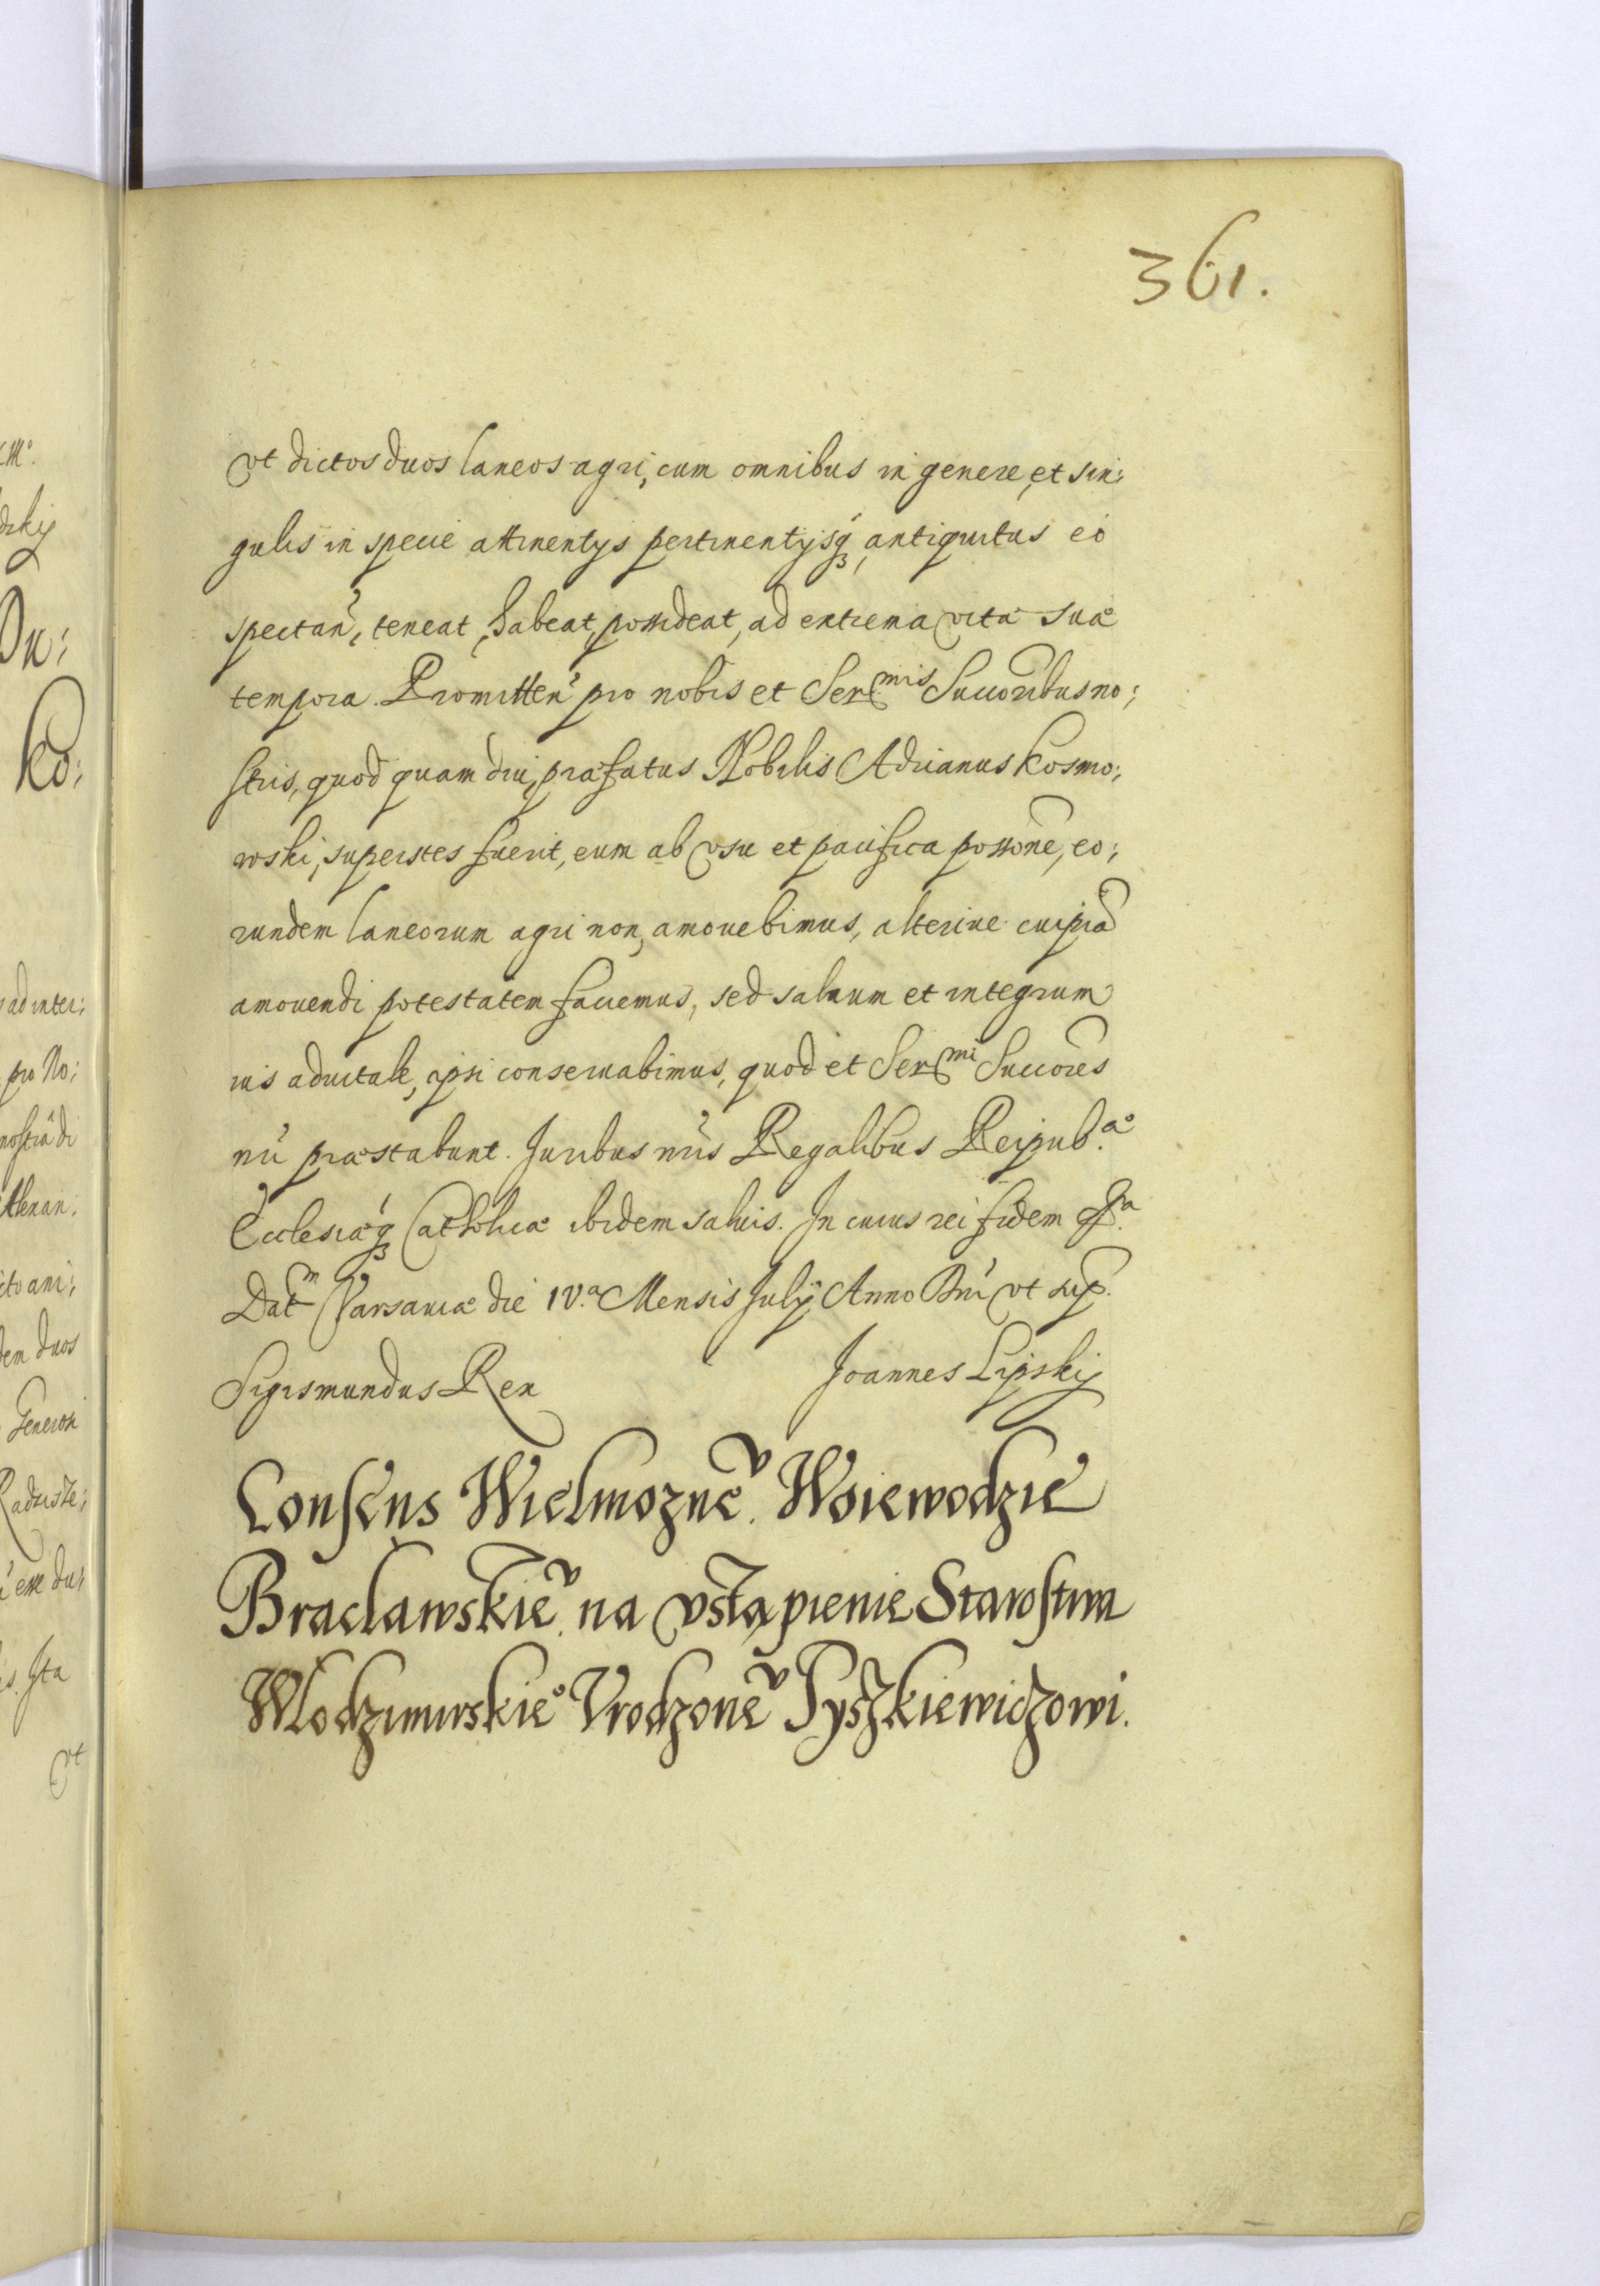 361.
vt dictos duos laneos agri, cum omnibus in genere, et sin:
gulis in specie attinentijs pertinentijsq́ꝫ, antiquitus eò
spectañ, teneat, habeat, possideat, ad extrema vitæ suæ
tempora. Promitteñ pro nobis et Ser^mis Succoribus no:
stris, quod quam diu, præfatus Nobilis Adrianus Kosmo:
wski, superstes fuerit, eum ab vsu et pacifica possone, eo:
rundem laneorum agri non, amouebimus, alteriue cuipiā
amouendi potestatem faciemus, sed saluum et integrum
ius aduitale, ipsi conseruabimus, quod et Ser^mi Succores
nri præstabunt. Juribus nris Regalibus Reipub.æ
Ecclesiæq́ꝫ Catholicæ ibidem saluis. In cuius rei fidem
Dat^m Varsauiæ die IV.a Mensis Julij Anno Dni vt sup.
Sigismundus Rex Joannes Lipskij
Consens Wielmozne^v. Woiewodzie
Braclawskie^v. na vstąpienie Starostwa
Wlodzimirskie° Vrodzone^v Tyszkiewiczowi.